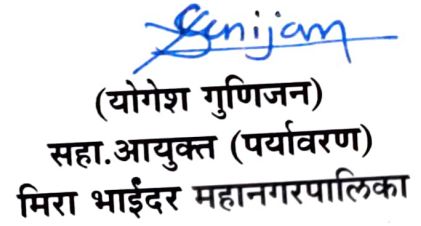 Gunijam
(योगेश गुणिजन)
सहा.आयुक्त (पर्यावरण)
मिरा भाईंदर महानगरपालिका